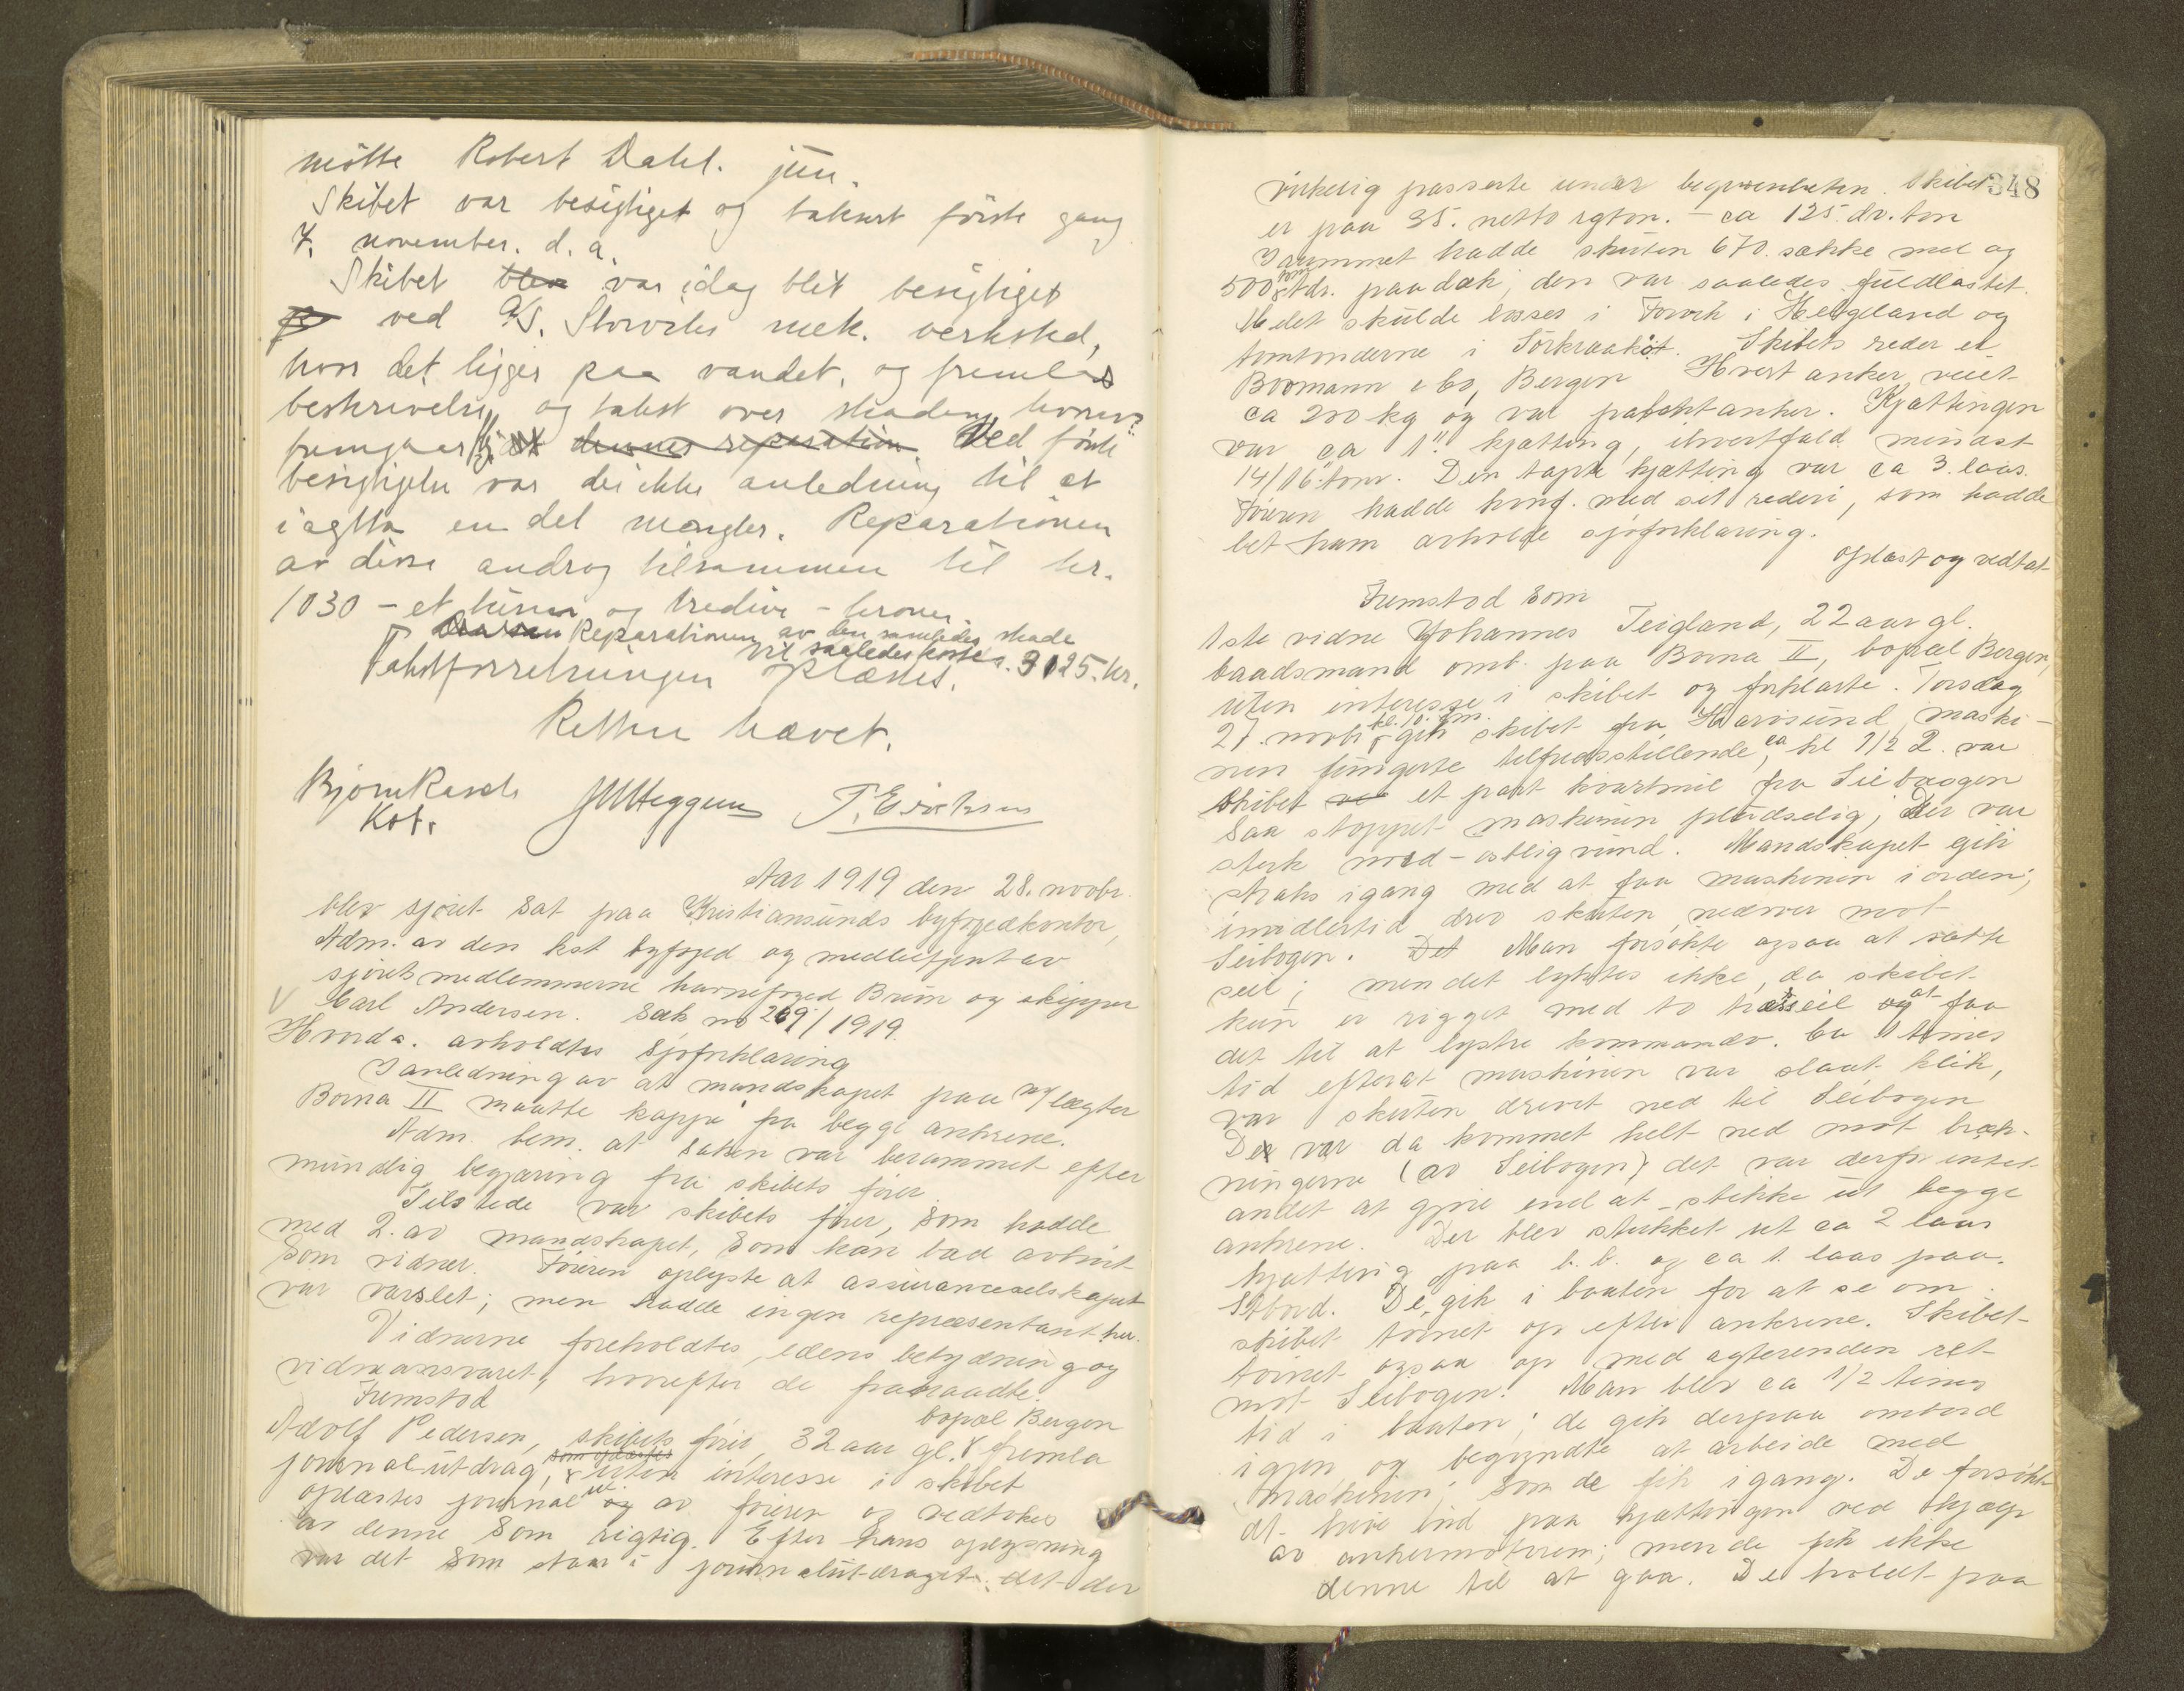 møtte Robert Dahl. jun.
Skibet var besigtiget og takseret første gang
7. november. d. a.
Skibet blev var idag blit besigtiget
p ved A/S. Storviks mek. verksted,
hvor det ligger paa vandet, og fremlas
beskrivelse og takst over skaden, hvorav
fremgaar at dennes reparation Ved første
besigtigelse var der ikke anledning til at
iagtta en del mangler. Reparationen
av disse androg tilsammen til kr.
1030 – et tusen og tredive – kroner.
Reparationen av den samlede skade
vil saaledes koste 3125. kr.
Takstforretningen oplæstes.
Retten hævet.
Bjørn Rasch J M Heggem T. Eriksen
Kst.
Aar 1919 den 28. novbr.
blev sjøret sat paa Kristiansunds byfogedkontor,
Adm. av den kst byfoged og medbetjent av
sjøretsmedlemmerne havnefoged Brun og skipper
V Carl Andersen. Sak no 269/1919.
Hvorda. avholdtes Sjøforklaring
I anledning av at mandskapet paa m/ lægter
Borna II maatte kappe fra begge ankrene.
Adm. bem. at saken var berammet efter
mundtlig begjæring fra skibets fører.
Tilstede var skibets fører, som hadde
med 2. av mandskapet, som han bad avhørt
som vidner. Føreren oplyste at assuranceselskapet
var varslet; men hadde ingen repræsentant her.
Vidnerne foreholdtes, edens betydning og
vidneansvaret, hvorefter de fratraadte.
Fremstod
bopæl Bergen
Adolf Pedersen, skibets fører, 32 aar gl. fremla
journalutdrag, som oplæstes uten interesse i skibet
oplæstes journal ut og av føreren og vedtokes
av denne som rigtig. Efter hans oplysning
var det som staar i journalutdraget det der
virkelig passerte under begivenheten. Skibet 348
er paa 35. netto rgton. – ca 125 dv. ton
I rummet hadde skuten 670. sække mel og
500 tom tdr. paa dæk; den var saaledes fuldlastet.
Melet skulde losses i Forvik i Helgeland og
tomtønderne i Sørkraakøt. Skibets reder er
Boomann & Co, Bergen Hvert anker veiet
ca 200 kg og var patentanker. Kjættingen
var ca 1" kjætting, ihvertfald mindst
14/16" tom. Den tapte kjætting var ca 3. laas.
Føreren hadde konf. med sit rederi, som hadde
bet ham avholde sjøforklaring.
oplæst og vedtat
Fremstod som
1ste vidne Johannes Teigland, 22 aar gl.
baadsmand omb. paa Borna II, bopæl Bergen,
uten interesse i skibet og forklarte. Torsdag
27. novbr kl. 10. fm. gik skibet fra Havnsund, maski-
nen fungerte tilfredsstillende, ca kl 1/2 2. var
skibet et part kvartmil fra Seibogen
Saa stoppet maskinen pludselig; der var
sterk nord-ostlig vind. Mandskapet gik
straks igang med at faa maskinen i orden;
imidlertid drev skuten nedover mot
Seibogen. Det Man forsøkte ogsaa at sætte
seil; men det lyktes ikke, da skibet
kun er rigget med to træseil og at faa
det til at lystre kommandov. Ca 1 times
tid efterat maskinen var slaat klik,
var skuten drevet ned til Seibogen
De var da kommet helt ned mot bræk-
ningerne (av Seibogen); det var derfor intet
andet at gjøre end at stikke ut begge
ankrene. Der blev stukket ut ca 2 laas
kjætting paa b.b. og ca 1. laas paa.
Stbord. De gik i baaten for at se om
skibet tørnet op efter ankrene. Skibet
tørnet ogsaa op med agterenden ret
mot Seibogen. Man blev ca 1/2 times
tid i baaten; de gik derpaa ombord
igjen og begyndte at arbeide med
maskinen; som de fik igang. De forsøkte
at hive ind paa kjættingen ved hjælp
av ankermotoren; men de fik ikke
denne til at gaa. De holdt paa